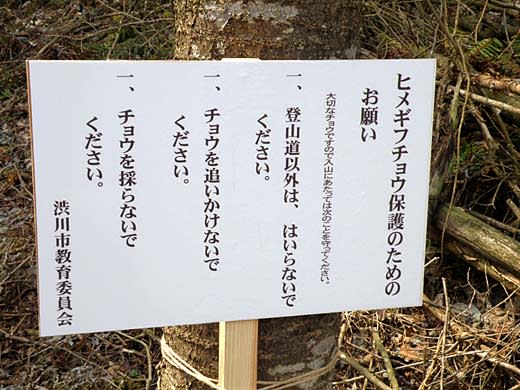 ヒメギフチョウ保護のための
お願い
大切なチョウですので入山にあたっては次のことを守ってください。
一、登山道以外は、はいらないで
ください。
一、チョウを追いかけないで
ください。
一、チョウを採らないで
ください。
渋川市教育委員会